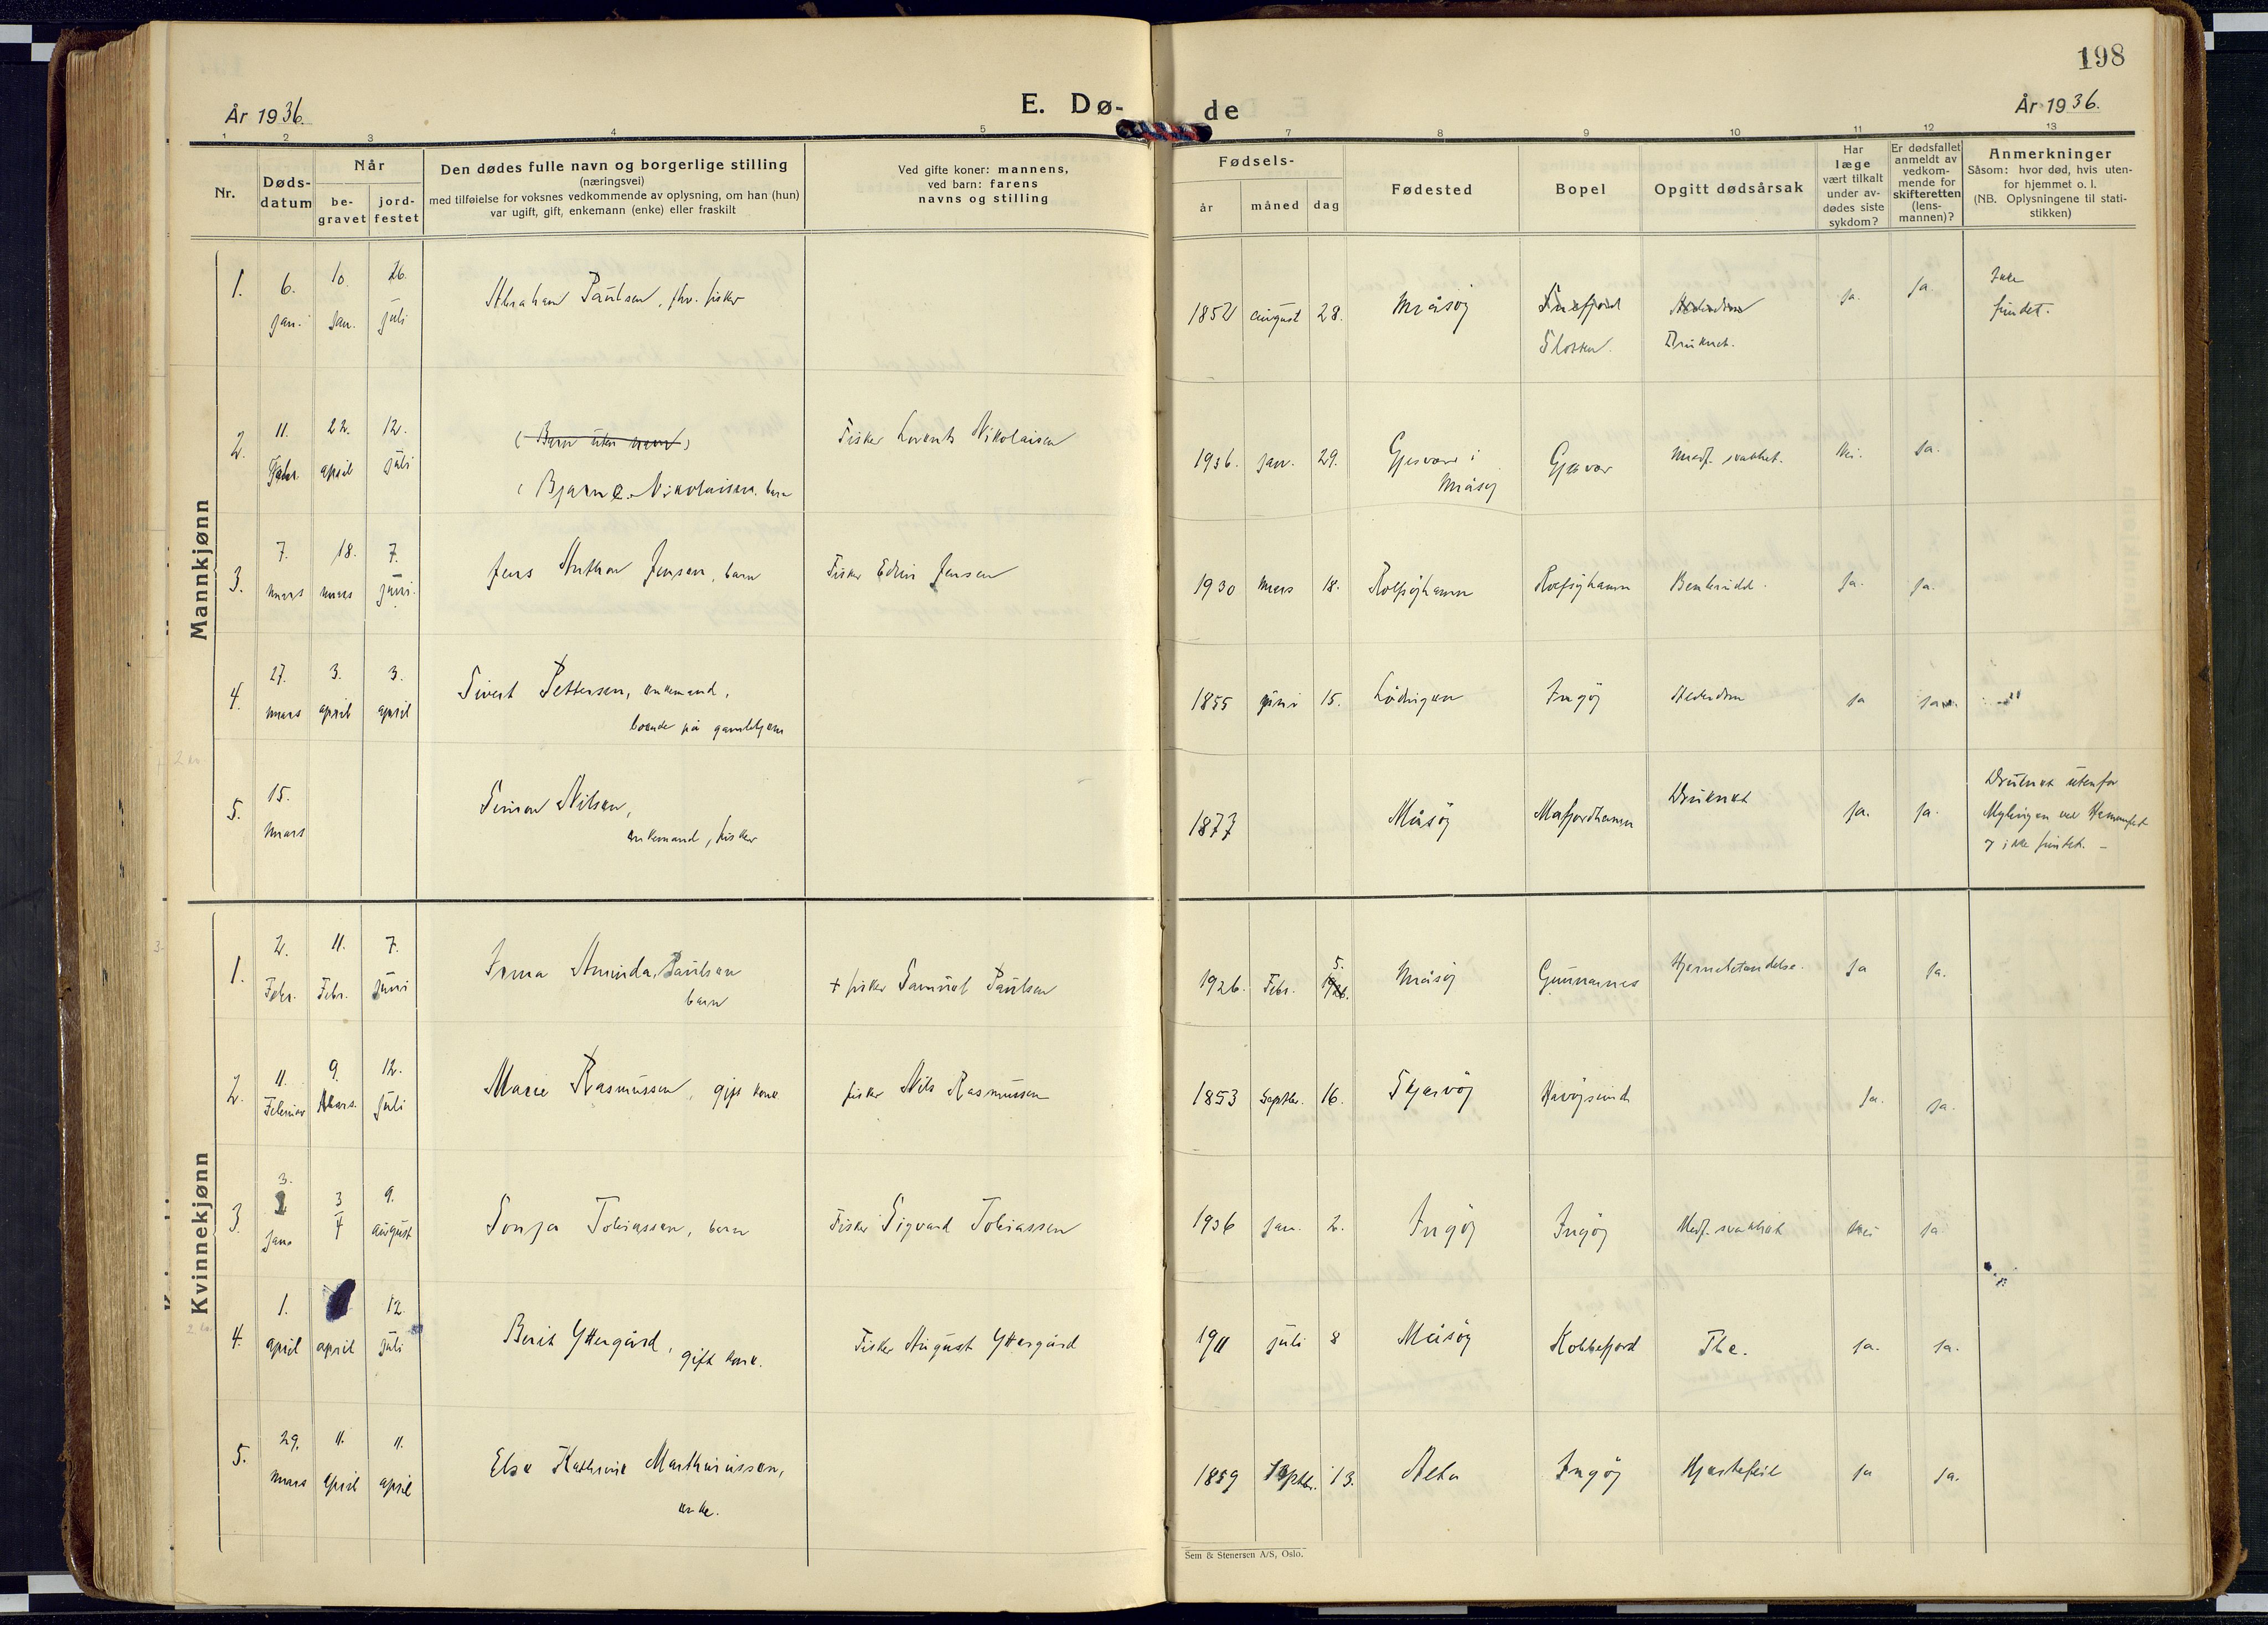 198
År 1936.
E. Dø-
de
År 1936.
1 2 3 4 5 7 8 9 10 11 12 13
Nr.
Døds-
datum
Når
be-
gravet
jord-
festet
Den dødes fulle navn og borgerlige stilling
(næringsvei)
med tilføielse for voksnes vedkommende av oplysning, om han (hun)
var ugift, gift, enkemann (enke) eller fraskilt
Ved gifte koner: mannens,
ved barn: farens
navns og stilling
Fødsels-
år
måned
dag
Fødested
Bopel
Opgitt dødsårsak
Har
læge
vært tilkalt
under av-
dødes siste
sykdom?
Er dødsfallet
anmeldt av
vedkom-
mende for
skifteretten
(lens-
mannen)?
Anmerkninger
Såsom: hvor død, hvis uten-
for hjemmet o. l.
(NB. Oplysningene til stati-
stikken)
Mannkjønn
1. 6. 10. 26.
jan. jan. juli
Abraham Paulsen, fhv. fisker
1852 august 28. Måsøy
Slotten. Druknet.
ja. ja.
Ikke
fundet.
2. 11. 22. 12.
Febr. april juli
(Barn uten navn)
(Bjarne Nikolaisen, barn
Fisker Lorents Nikolaisen
1936. jan. 29. Gjesvær i
Måsøy
Gjesvær medf. svakhet. Nei. Ja.
3. 7. 18. 7.
mars mars juni.
Jens Anthon Jensen, barn
Fisker Edvin Jensen
1930 mars 18. Rolfsøyhamn Rolfsøyhamn ja. ja.
4. 27. 3. 3.
mars april april
Sivert Pettersen, enkemand,
boende på gamlehjem
1855 juni 15. Lødingen Ingøy Alderdom ja ja
5. 15.
mars
Simon Nilsen,
enkemand, fisker
1877 Måsøy Mafjordhamn Druknet ja. ja.
Druknet utenfor
Mylingen ved
ikke fundet. –
Kvinnekjønn
1. 2. 11. 7.
Febr. Febr. juni
Irma Aminda Paulsen
barn
+ fisker Samuel Paulsen
1926. Febr. 5. Måsøy Gunnarnes Hjernebetendelse. ja ja.
2. 11. 9. 12.
Februar Mars. juli
Marie Rasmussen, gift kone
fisker Nils Rasmussen
1853 Septbr. 16. Skjervøy Havøysund ja. ja.
3. 3. 3/4 9.
jan. august
Sonja Tobiassen, barn
Fisker Sigvard Tobiassen
1936 jan. 2. Ingøy Ingøy Medf. svakhet nei ja
4. 1. 12.
april april juli
Berit Yttergård, gift kone.
Fisker August Yttergård
1911 juli 8 Måsøy Kobbefjord Tbc. ja. ja.
5. 29. 11. 11.
mars april april
Else Kathrine Mathinussen,
enke.
1859 Septbr. 13. Alta Ingøy Hjertefeil ja ja.
Sem & Stenersen A/S, Oslo.